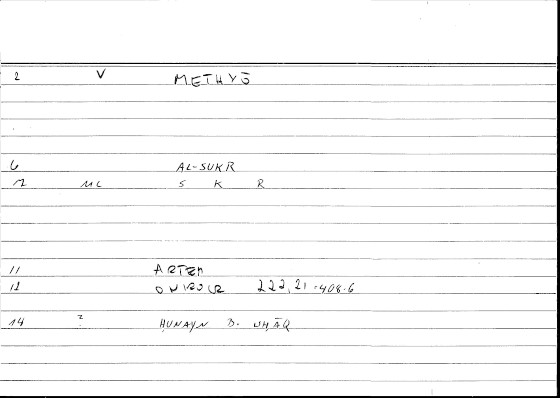 2 V METHYŌ
6 AL-SUKR
7 S K R
11 ARTEM
12 ONIROCR 222,21=408.6
14 ? ḤUNAYN B. ISḤĀQ